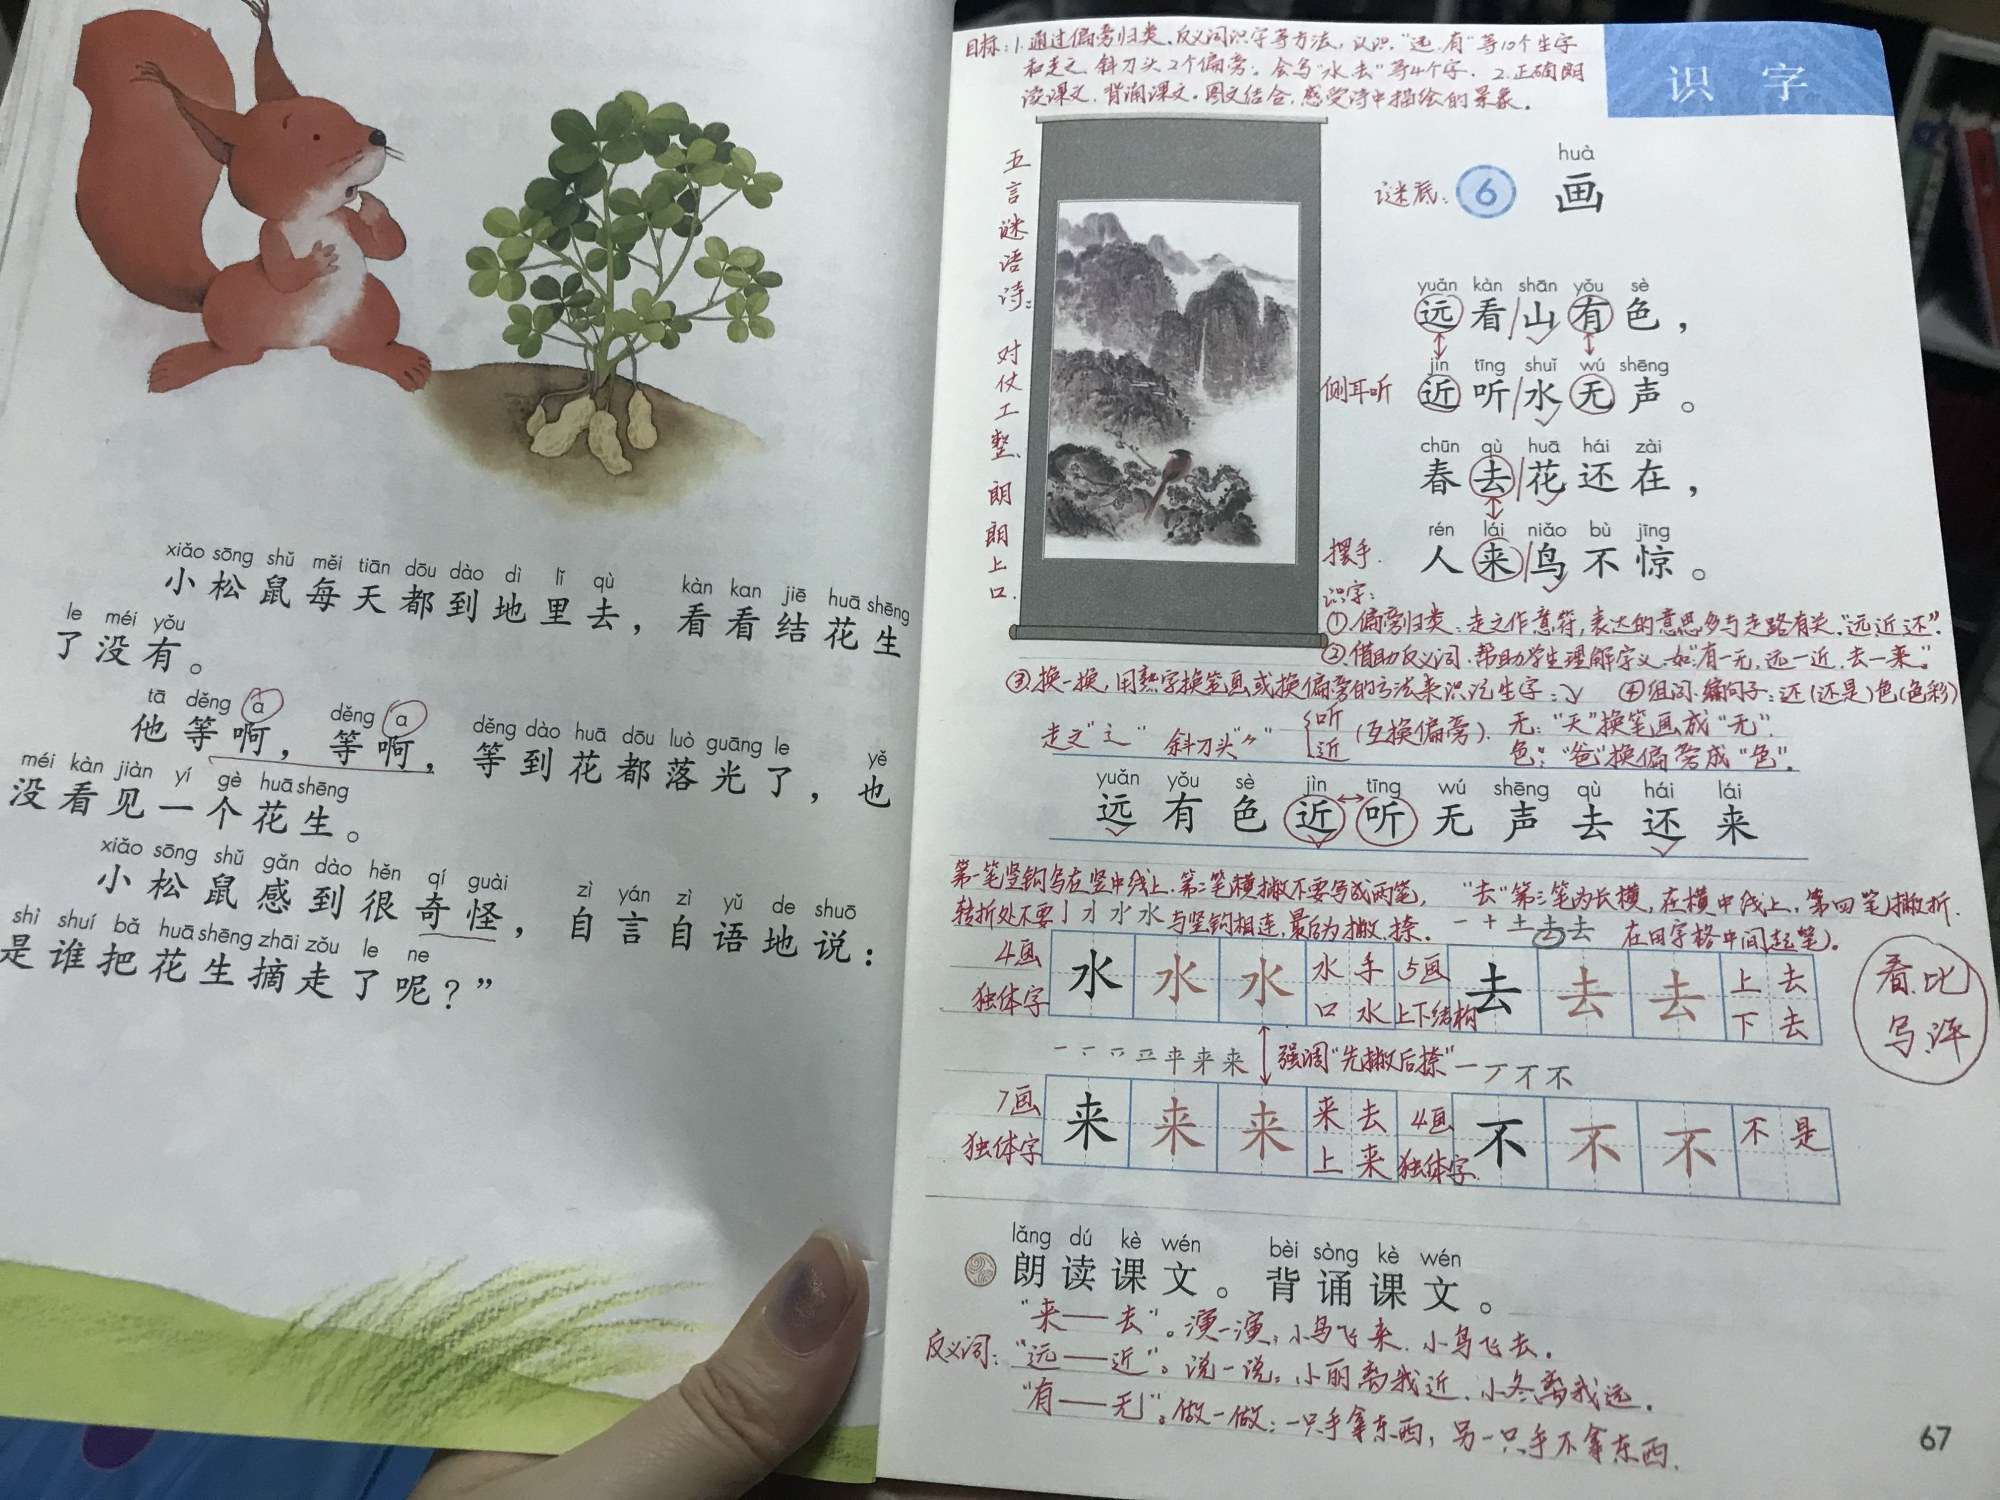 xiǎo sōng shǔ měi tiān dōu dào dì lǐ qù kàn kan jiē huā shēng
小松鼠每天都到地里去，看看结花生
le méi yǒu
了没有。
tā děng a děng a děng dào huā dōu luò guāng le yě
他等啊，等啊，等到花都落光了，也
méi kàn jiàn yí gè huā shēng
没看见一个花生。
xiǎo sōng shǔ gǎn dào hěn qí guài zì yán zì yǔ de shuō
小松鼠感到很奇怪，自言自语地说：
shì shuí bǎ huā shēng zhāi zǒu le ne
是谁把花生摘走了呢？”
目标：1.通过偏旁归类、反义词识字等方法，认识“远、有”等10个生字
和走之、斜刀头2个偏旁。会写“水、去”等4个字。2.正确朗
读课文，背诵课文。图文结合，感受诗中描绘的景象。
识字
五言谜语诗：对仗工整、朗朗上口.
huà
谜底：6 画
yuǎn kàn shān yǒu sè
远看/山有色，
jìn tīng shuǐ wú shēng
侧耳听 近听/水无声。
chūn qù huā hái zài
春去/花还在，
rén lái niǎo bù jīng
摆手. 人来/鸟不惊。
识字：
①.偏旁归类：走之作意符，表达的意思多与走路有关.“远近还”.
②.借助反义词.帮助学生理解字义.如：“有—无，远—近，去—来.”
③换一换，用熟字换笔画或换偏旁的方法来识记生字：↘ ④组词.编句子：还(还是)色(色彩)
走之“辶” 斜刀头“⺈” {听 近 (互换偏旁). 无：“天”换笔画成“无”.
色：“爸”换偏旁成“色”.
yuǎn yǒu sè jìn tīng wú shēng qù hái lái
远有色近听无声去还来
第一笔竖钩写在竖中线上.第二笔横撇不要写成两笔，
转折处不要亅 水与竖钩相连，最后为撇、捺.
“去”第三笔为长横，在横中线上，第四笔撇折.
一十土去去 在田字格中间起笔).
4画 独体字 水 水 水 水手 口水
5画 上下结构 去 去 去 上去 下去
看.比
写.评
来来 强调“先撇后捺” 一ㄱ不不
7画 独体字 来 来 来 来去 上来
4画 独体字 不 不 不 不是
lǎng dú kè wén bèi sòng kè wén
朗读课文。背诵课文。
反义词：
“来——去”。演一演：小鸟飞来.小鸟飞去.
“远——近”。说一说：小丽离我近.小冬离我远.
“有——无”。做一做：一只手拿东西，另一只手不拿东西.
67